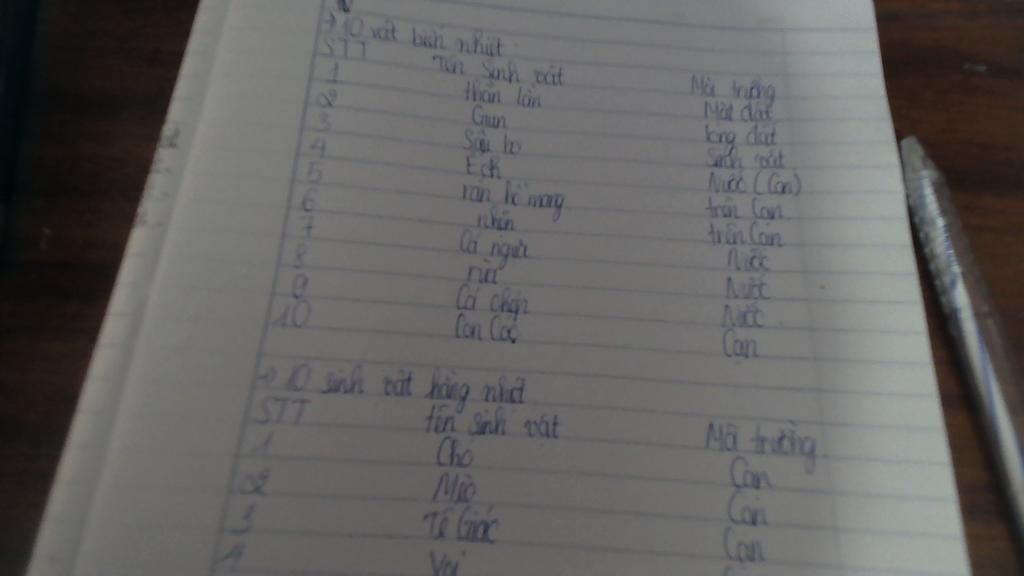 → 10 vật biến nhiệt
STT Tên sinh vật Môi trường
1 thằn lằn Mặt đất
2 Giun long đất
3 Sâu bọ Sinh vật
4 Ếch Nước (Cạn)
5 rắn hổ mang trên Cạn
6 nhện trên Cạn
7 Cá ngựa Nước
8 rùa Nước
9 Cá chép Nước
10 Con Cóc Cạn
→ 10 sinh vật hằng nhiệt
STT tên sinh vật Môi trường
1 Chó Cạn
2 Mèo Cạn
3 Tê Giác Cạn
4 Voi